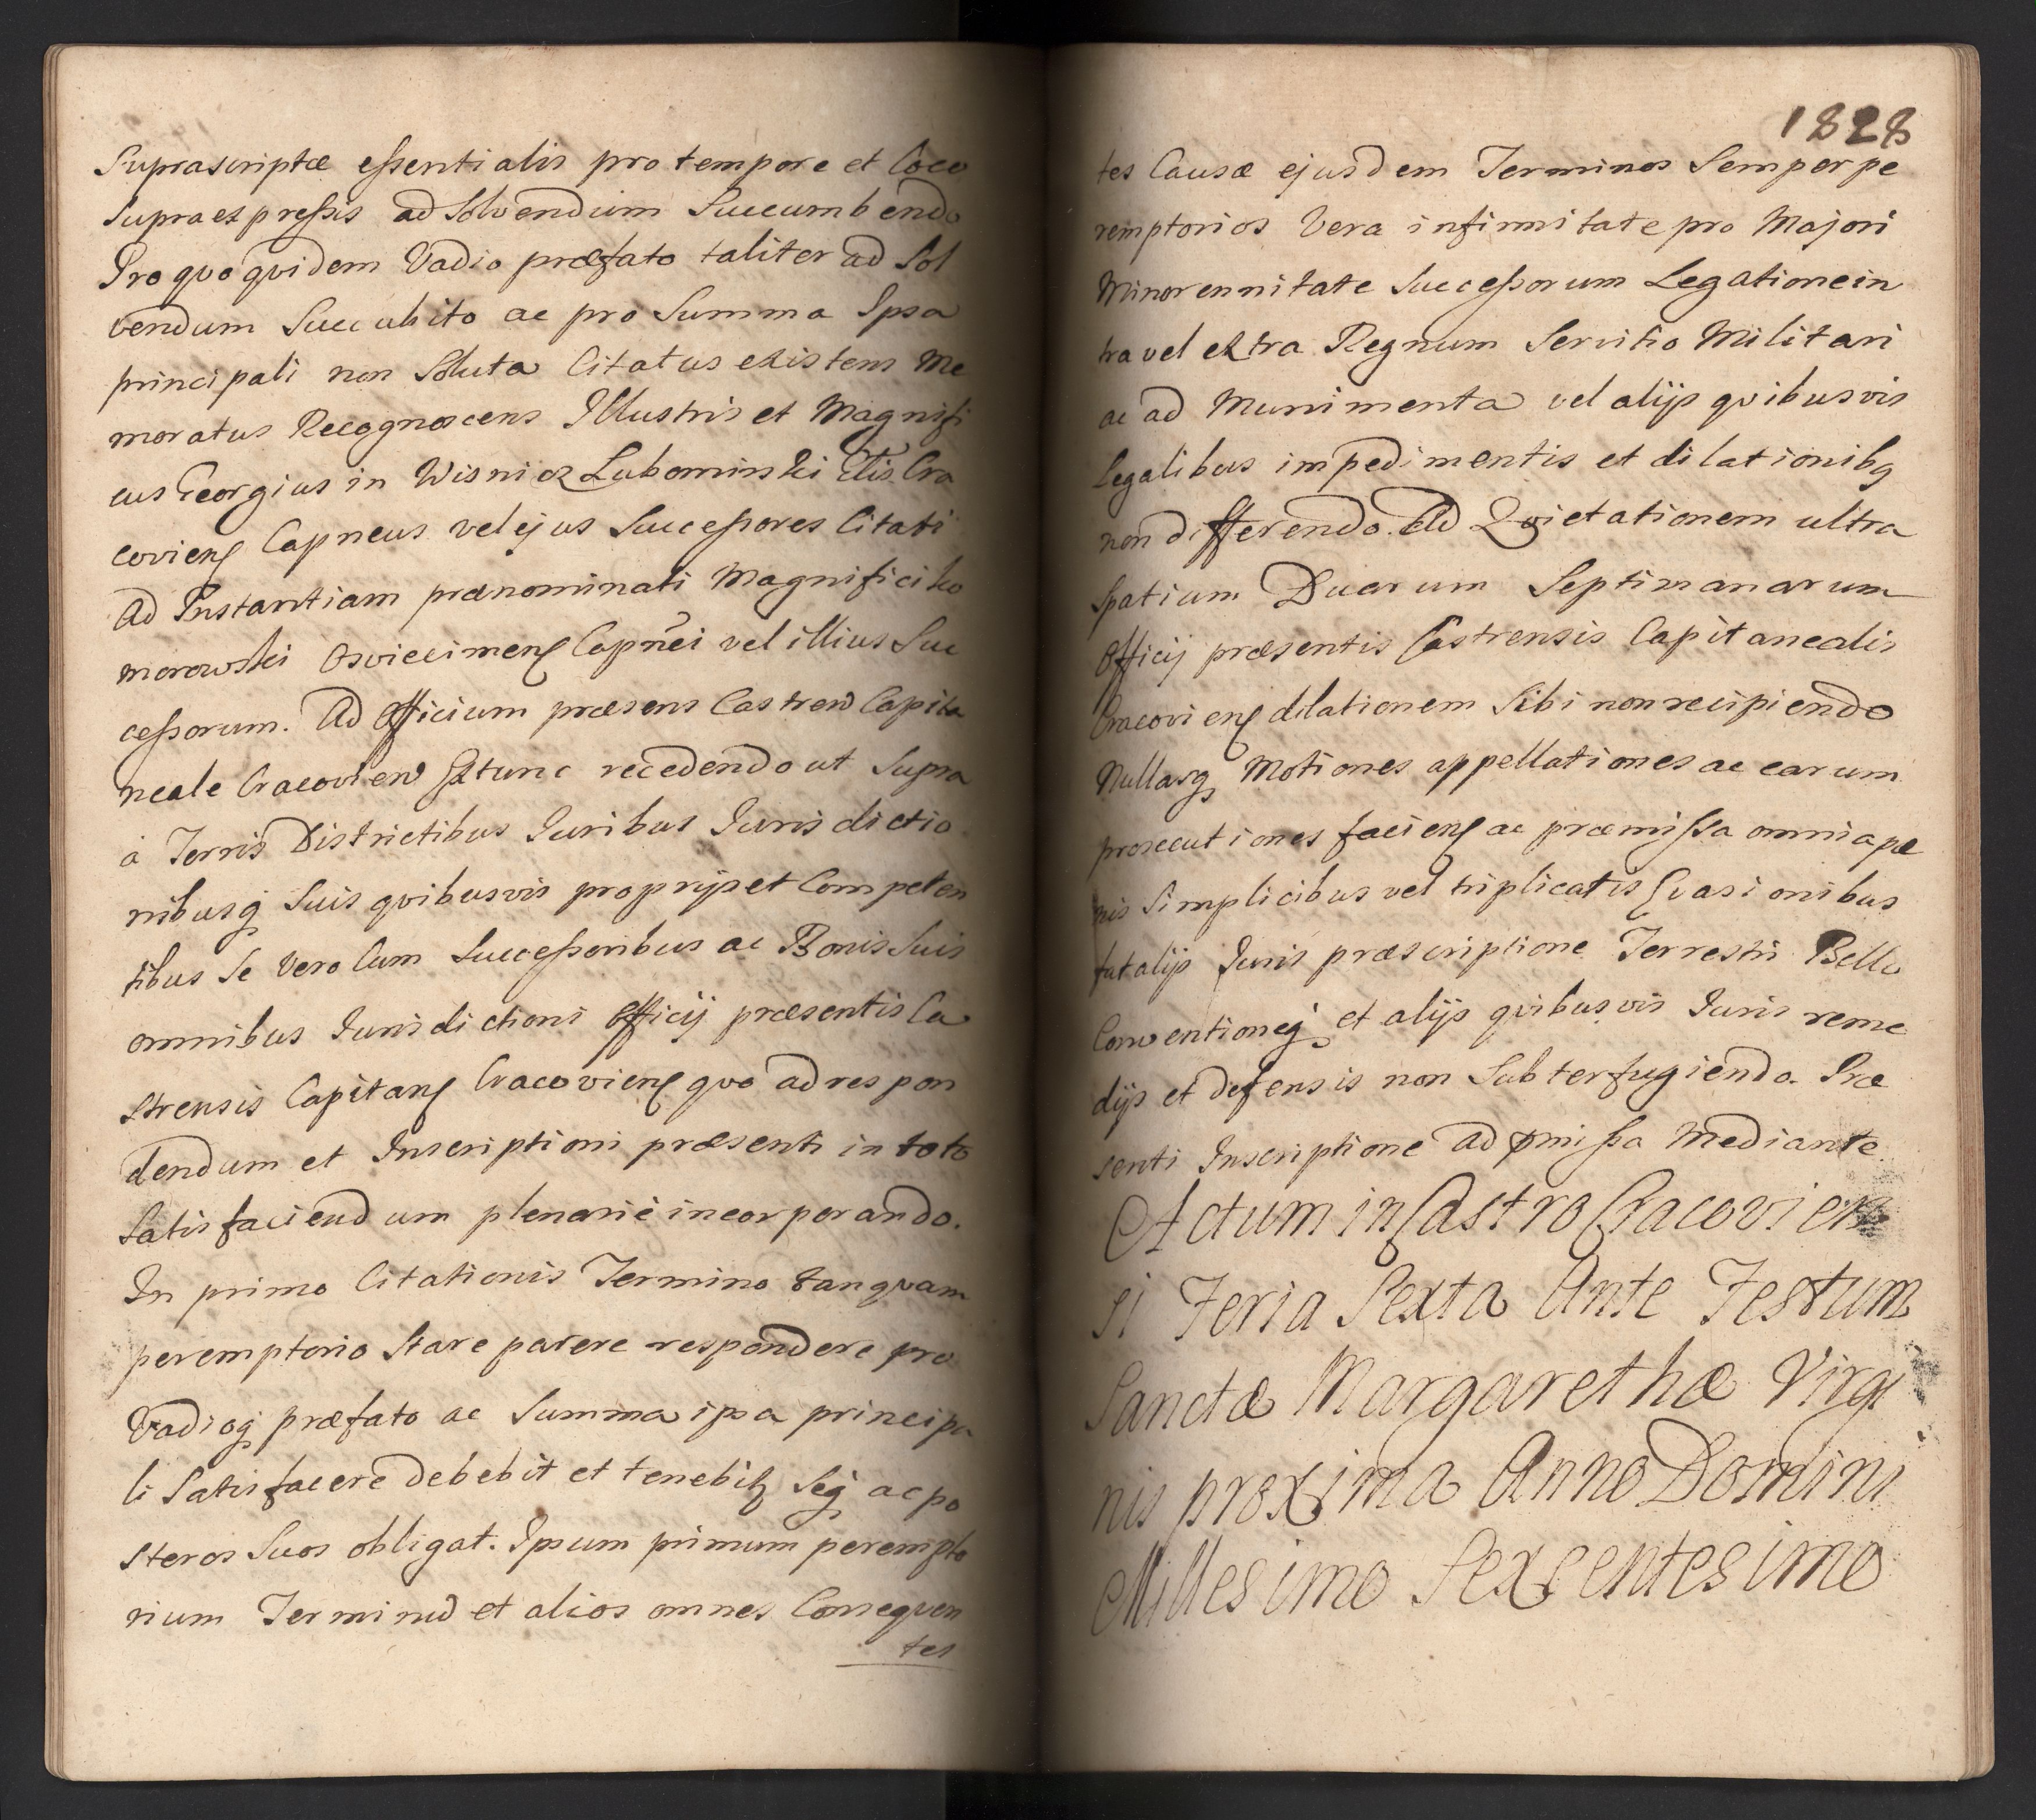 Suprascriptæ essentialis pro tempore et Loco
supraexpressis ad Solvendum Succumbendo
Pro quo quidem Vadio præfato taliter ad Sol
vendum Succubito ac pro Summa Ipsa
principali non Soluta Citatus existens Me
moratus Recognoscens Illustris et Magnifi
cus Georgius in Wisnicz Lubomirski Etis Cra
coviens Capneus vel ejus Successores Citati
Ad Instantiam prænominati Magnifici Ko
morowski Osviecimens Capnei vel illius Suc
cessorum. Ad Officium præsens Castren Capita
neale Cracovien Extunc recedendo ut Supra
à Terris Districtibus Juribus Jurisdictio
nibusq Suis quibusvis proprijs et Competen
tibus Se vero Cum Successoribus ac Bonis Suis
omnibus Jurisdictioni Officij præsentis Ca
strensis Capitans Cracoviens quo ad respon
dendum et Inscriptioni præsenti in toto
Satisfaciendum plenariè incorporando.
In primo Citationis Termino tanquam
peremptorio Stare parere respondere pro
Vadioq præfato ac Summa ipsa principa
li Satisfacere debebit et tenebitz Seq ac po
steros Suos obligat. Ipsum primum perempto
rium Terminu et alios omnes Consequen
tes
1828
tes Causæ ejusdem Terminos Semper pe
remptorios Vera infirmitate pro Majori
Minorennitate Successorum Legatione in
tra vel extra Regnum Servitio Militari
ac ad Munimenta vel alijs quibusvis
Legalibus impedimentis et dilationibq
non differendo. Ad Quietationem ultra
Spatium Duarum Septimanarum
Officij præsentis Castrensis Capitanealis
Cracoviens dilationem Sibi non recipiendo
Nullasq Motiones appellationes ac earum
prosecutiones faciens ac præmissa omnia pæ
nis Simplicibus vel triplicatis Evasionibus
fatalijs Juris præscriptione Terrestri Bello
Conventioneq et alijs quibusvis Juris reme
dijs et defensis non Subterfugiendo. Præ
senti Inscriptione ad pmissa Mediante
Actum in Castro Cracovien
si Feria Sexta Ante Festum
Sanctæ Margarethæ Virgi
nis proxima Anno Domini
Millesimo Sexcentesimo